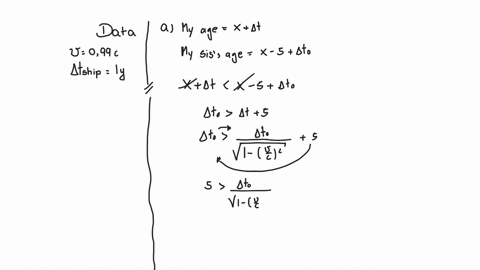 Data
v = 0,99 c
Δt ship = 1y
a) My age = x + Δt
My sis', age = x - 5 + Δt₀
x + Δt < x - 5 + Δt₀
Δt₀ > Δt + 5
Δt₀ > Δt₀ / √(1 - (v/c)²) + 5
5 > Δt₀ / √(1 - (v/c